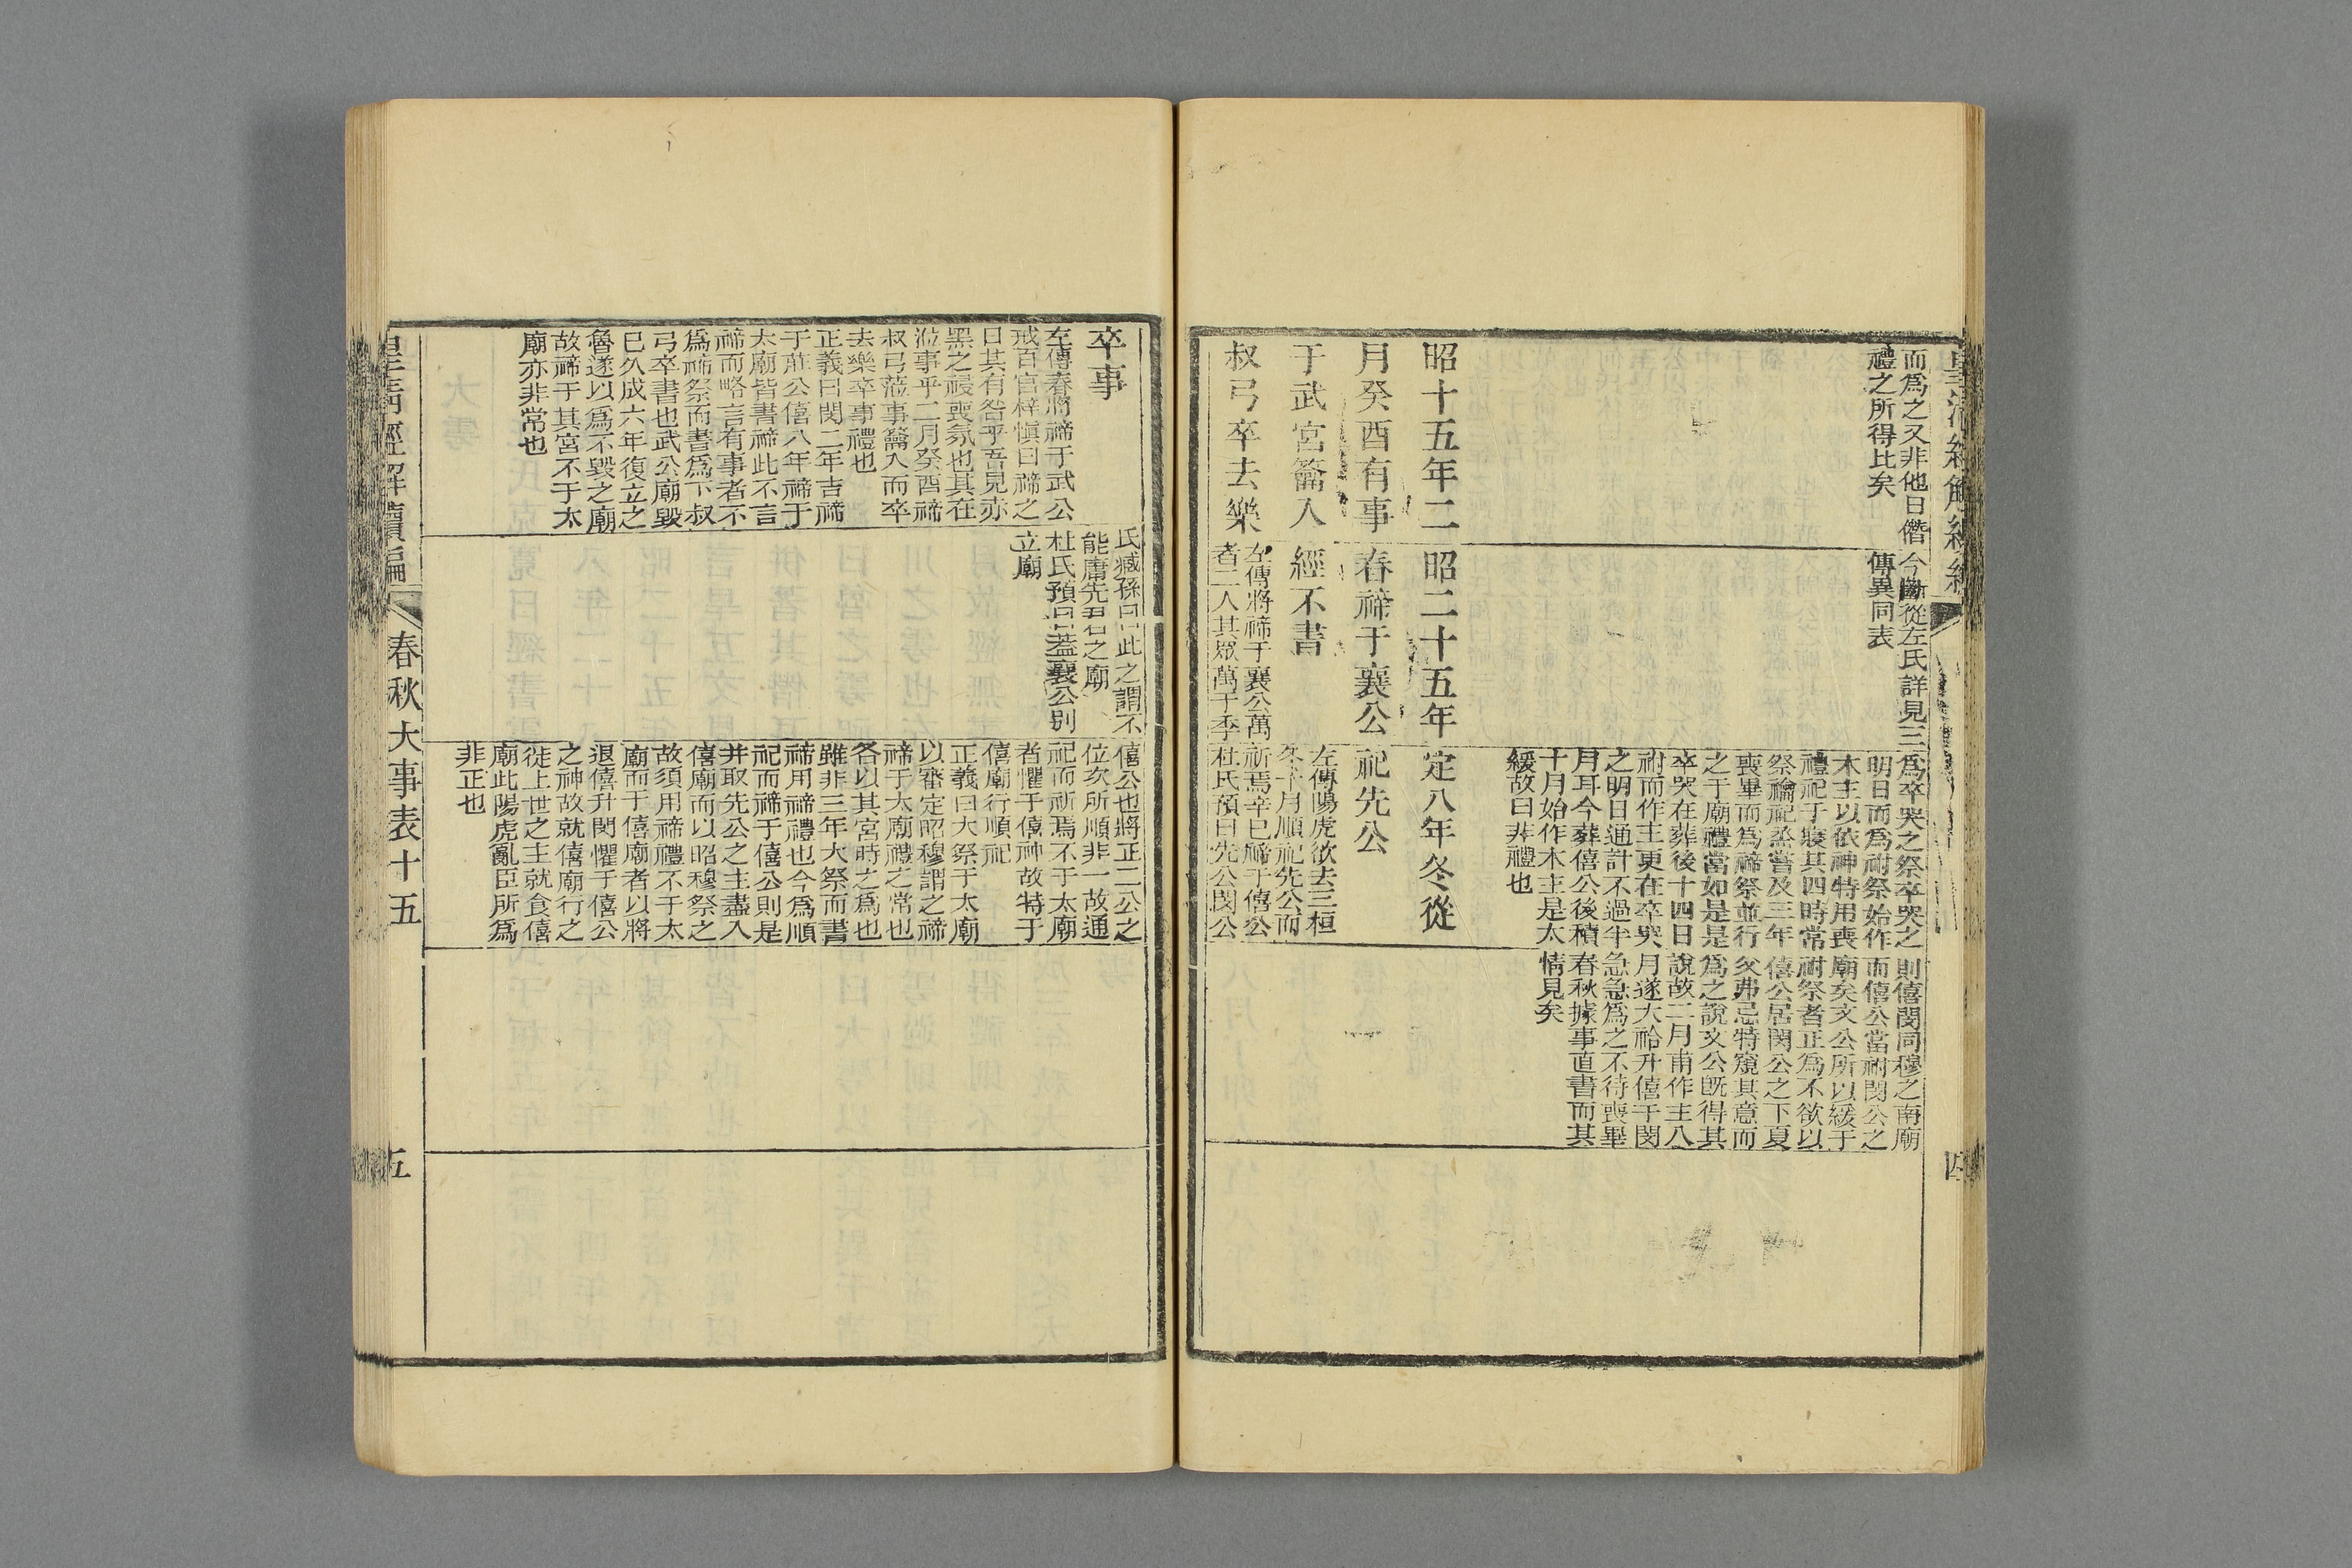 皇清經解續編
四
而爲之又非他日僭
禮之所得比矣
昭十五年二
月癸酉有事
于武宮籥入
叔弓卒去樂
今斷從左氏詳見三
傳異同表
昭二十五年
春禘于襄公
經不書
左傳將禘于襄公萬
者二人其眾萬于季
爲卒哭之祭卒哭之
明日而爲祔祭始作
木主以依神特用喪
禮祀于寢其四時常
祭禴祀烝嘗及三年
喪畢而爲禘祭並行
之于廟禮當如是是
卒哭在葬後十四日
祔而作主更在卒哭
之明日通計不過半
月耳今葬僖公後積
十月始作木主是太
緩故曰非禮也
定八年冬從
祀先公
左傳陽虎欲去三桓
冬十月順祀先公而
祈焉辛巳禘于僖公
杜氏預曰先公閔公
則僖閔同穆之南廟
而僖公當祔閔公之
廟矣文公所以緩于
祔祭者正爲不欲以
僖公居閔公之下夏
父弗忌特窺其意而
爲之說文公旣得其
說故二月甫作主八
月遂大祫升僖于閔
急急爲之不待喪畢
春秋據事直書而其
情見矣
卒事
左傳春將禘于武公
戒百官梓愼曰禘之
日其有咎乎吾見赤
黑之祲喪氛也其在
涖事乎二月癸酉禘
叔弓涖事籥入而卒
去樂卒事禮也
正義曰閔二年吉禘
于莊公僖八年禘于
太廟皆書禘此不言
禘而略言有事者不
爲禘祭而書爲下叔
弓卒書也武公廟毀
已久成六年復立之
魯遂以爲不毀之廟
故禘于其宮不于太
廟亦非常也
氏臧孫曰此之謂不
能庸先君之廟
杜氏預曰蓋襄公别
立廟
僖公也將正二公之
位次所順非一故通
祀而祈焉不于太廟
者懼于僖神故特于
僖廟行順祀
正義曰大祭于太廟
以審定昭穆謂之禘
禘于太廟禮之常也
各以其宮時之爲也
雖非三年大祭而書
禘用禘禮也今爲順
祀而禘于僖公則是
并取先公之主盡入
僖廟而以昭穆祭之
故須用禘禮不于太
廟而于僖廟者以將
退僖升閔懼于僖公
之神故就僖廟行之
從上世之主就食僖
廟此陽虎亂臣所爲
非正也
皇清經解續編
春秋大事表十五
五